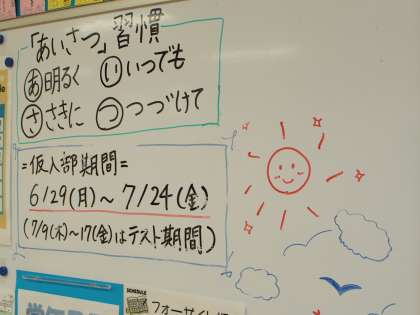 「あいさつ」習慣
あ明るく いいつでも
ささきに つつづけて
=仮入部期間=
6/29(月)～7/24(金)
(7/9(木)～17(金)はテスト期間)
SCHEDULE
フォーサイト